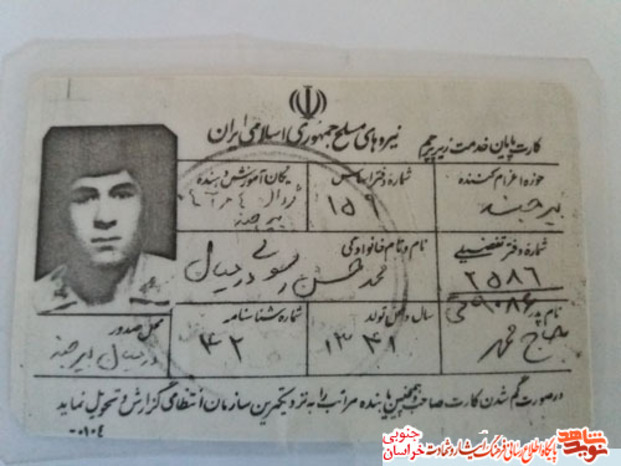 کارت پایان خدمت زیر پرچم
نیروهای مسلح جمهوری اسلامی ایران
حوزه اعزام کننده
بیرجند
شماره دفتر اساس
۱۵۹
یگان آموزش دهنده
۰۴
بیرجند
شماره دفتر تفضیلی
۲۵۸۶
نام و نام خانوادگی
محمد حسن رسولی درمیال
نام پدر
حاج محمد
سال و محل تولد
۱۳۴۱
شماره شناسنامه
۴۲
محل صدور
درمیال بیرجند
در صورت گم شدن کارت صاحب و همچنین یابنده مراتب را به نزدیکترین سازمان انتظامی گزارش و تحویل نماید
۰۱۰۴-
نوید شاهد
پایگاه اطلاع رسانی فرهنگ ایثار و شهادت
خراسان جنوبی